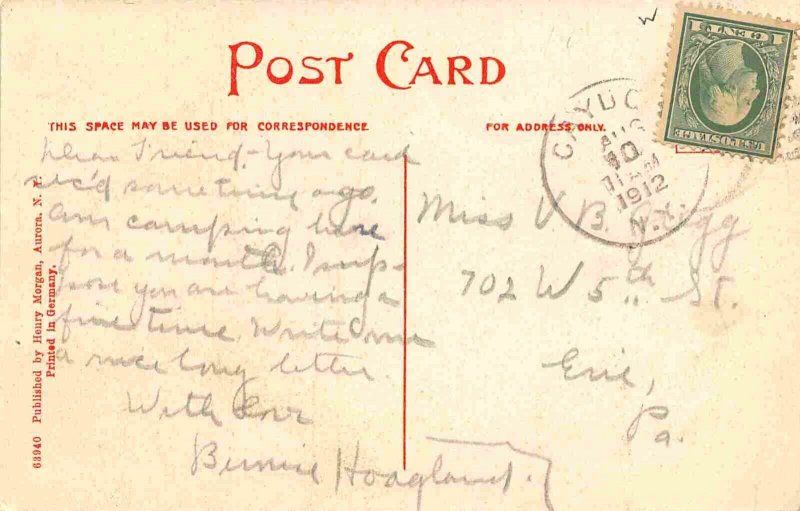 POST CARD
THIS SPACE MAY BE USED FOR CORRESPONDENCE
FOR ADDRESS ONLY.
Dear Friend - Your card
rec'd sometime ago.
Am camping here
for a month. I sup-
pose you are having a
fine time. Write me
a nice long letter.
With love
Bernice Hoagland.
CAYUG
AUG
30
11 AM
1912
N.
1 CENT 1
U.S. POSTAGE
Miss V. B.
702 W 5th St.
Erie,
Pa.
63940 Published by Henry Morgan, Aurora, N. Y.
Printed in Germany.